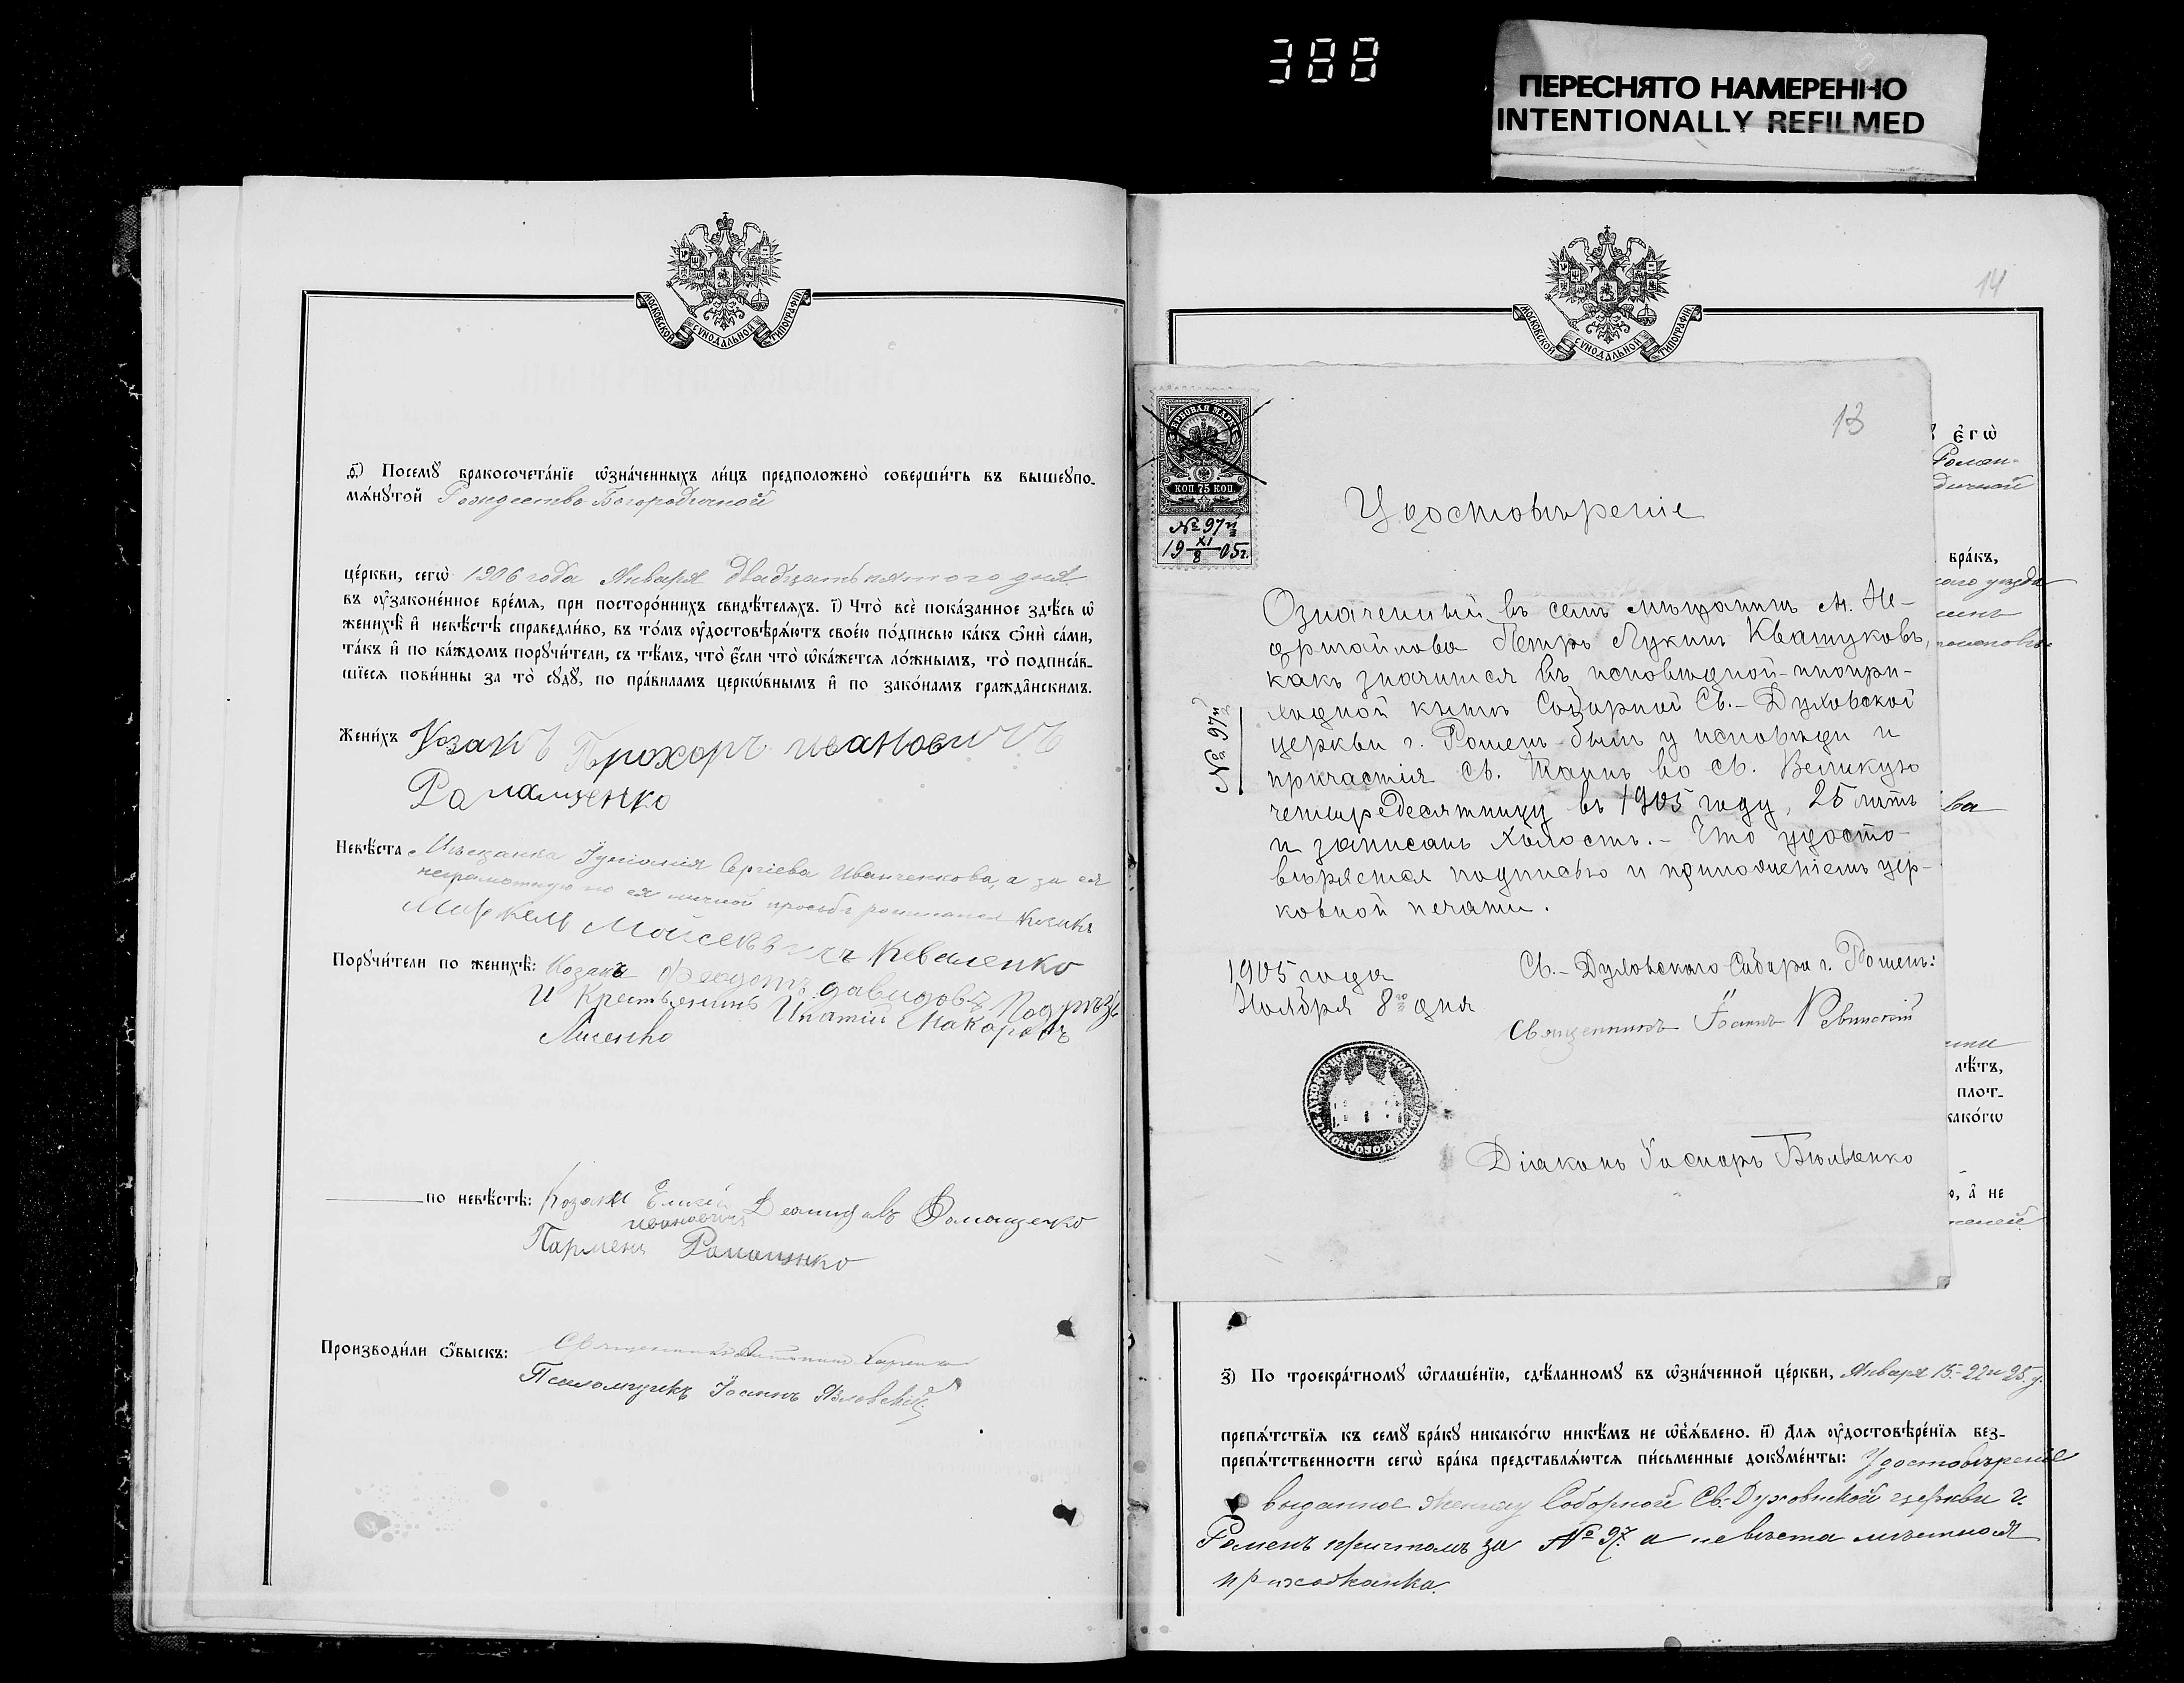 388
ПЕРЕСНЯТО НАМЕРЕННО
INTENTIONALLY REFILMED
МОСКОВСКОЙ СѴНОДАЛЬНОЙ ТИПОГРАФІИ
Ѳ҃) Посемꙋ бракосочета́нїе ѡ҆зна́ченныхъ ли́цъ предположено̀ соверши́ть въ вышеꙋпо-
мѧ́нꙋтой Рождество Богородичной
це́ркви, сегѡ̀ 1906 года Января двадцать пятого дня
въ оу҆законе́нное вре́мѧ, при посторо́ннихъ свидѣ́телѧхъ. і҃) Что̀ всѐ пока́занное здѣ́сь ѡ҆
женихѣ̀ и҆ невѣ́стѣ справедли́во, въ то́мъ оу҆достовѣрѧ́ютъ свое́ю по́дписью ка́къ ѻ҆нѝ са́ми,
та́къ и҆ по ка́ждомъ порꙋчи́тели, съ тѣ́мъ, что̀ є҆́сли что̀ ѡ҆ка́жетсѧ ло́жнымъ, то̀ подписа́в-
шїесѧ пови́нны за то̀ сꙋдꙋ̀, по пра́виламъ церко́внымъ и҆ по зако́намъ гражда́нскимъ.
Жени́хъ Козакъ Прохоръ ивановичъ
Рамащенко
Невѣ́ста Мѣщанка Іуліанія Сергіева Иванченкова, а за ея
неграмотную по ея личной просьбѣ росписался козакъ
Маркелъ Мойсеевичъ Коваленко
Порꙋчи́тели по женихѣ̀: Козакъ Ѳеодотъ давидовъ
И Крестьянинъ Ипатій Макаровъ
Лисенко
по невѣ́стѣ: Козаки Елисей Демидовъ Ромащенко
ивановичъ
Парменъ Ромащенко
Производи́ли ѻ҆́быскъ: Священникъ
Псаломщикъ Іоаннъ
14
МОСКОВСКОЙ СѴНОДАЛЬНОЙ ТИПОГРАФІИ
13
ГЕРБОВАЯ МАРКА
КОП 75 КОП.
№ 97й
19 XI/8 05г.
Удостовѣреніе
№ 97й
Означенный въ семъ мѣщанинъ м. Не-
дригайлова Петръ Лукинъ Квашуковъ,
какъ значится въ исповѣдной-ипопри-
ходной книгѣ Соборной Св.-Духовской
церкви г. Роменъ-былъ у исповѣди и
причастія Св. Таинъ во Св. Великую
четыредесятницу въ 1905 году, 25 лѣтъ
и записанъ холостъ. - Что удосто-
вѣряется подписью и приложеніемъ цер-
ковной печати.
1905 года
Ноября 8го дня
Св.-Духовского Собора г. Роменъ:
Священникъ Іоаннъ
Діаконъ Гаспаръ
є҆гѡ̀
Ромен-
дичной
бра́къ,
каго уѣзда
ва
лѣ́тъ,
плот-
како́гѡ
ю, а҆ не
з҃) По троекра́тномꙋ ѡ҆глаше́нїю, сдѣ́ланномꙋ въ ѡ҆зна́ченной це́ркви, Января 15.- 22 и 25 д.
препѧ́тствїѧ къ семꙋ̀ бра́кꙋ никако́гѡ никѣ́мъ не ѡ҆б̾ѧ́влено. и҃) Для оу҆достовѣре́нїѧ без-
препѧ́тственности сегѡ̀ бра́ка представлѧ́ютсѧ пи́сьменные докꙋме́нты: Удостовѣреніе
выданное жениху Соборной Св.-Духовской церкви г.
Роменъ причтомъ за № 97. а невѣста мѣстная
прихожанка.